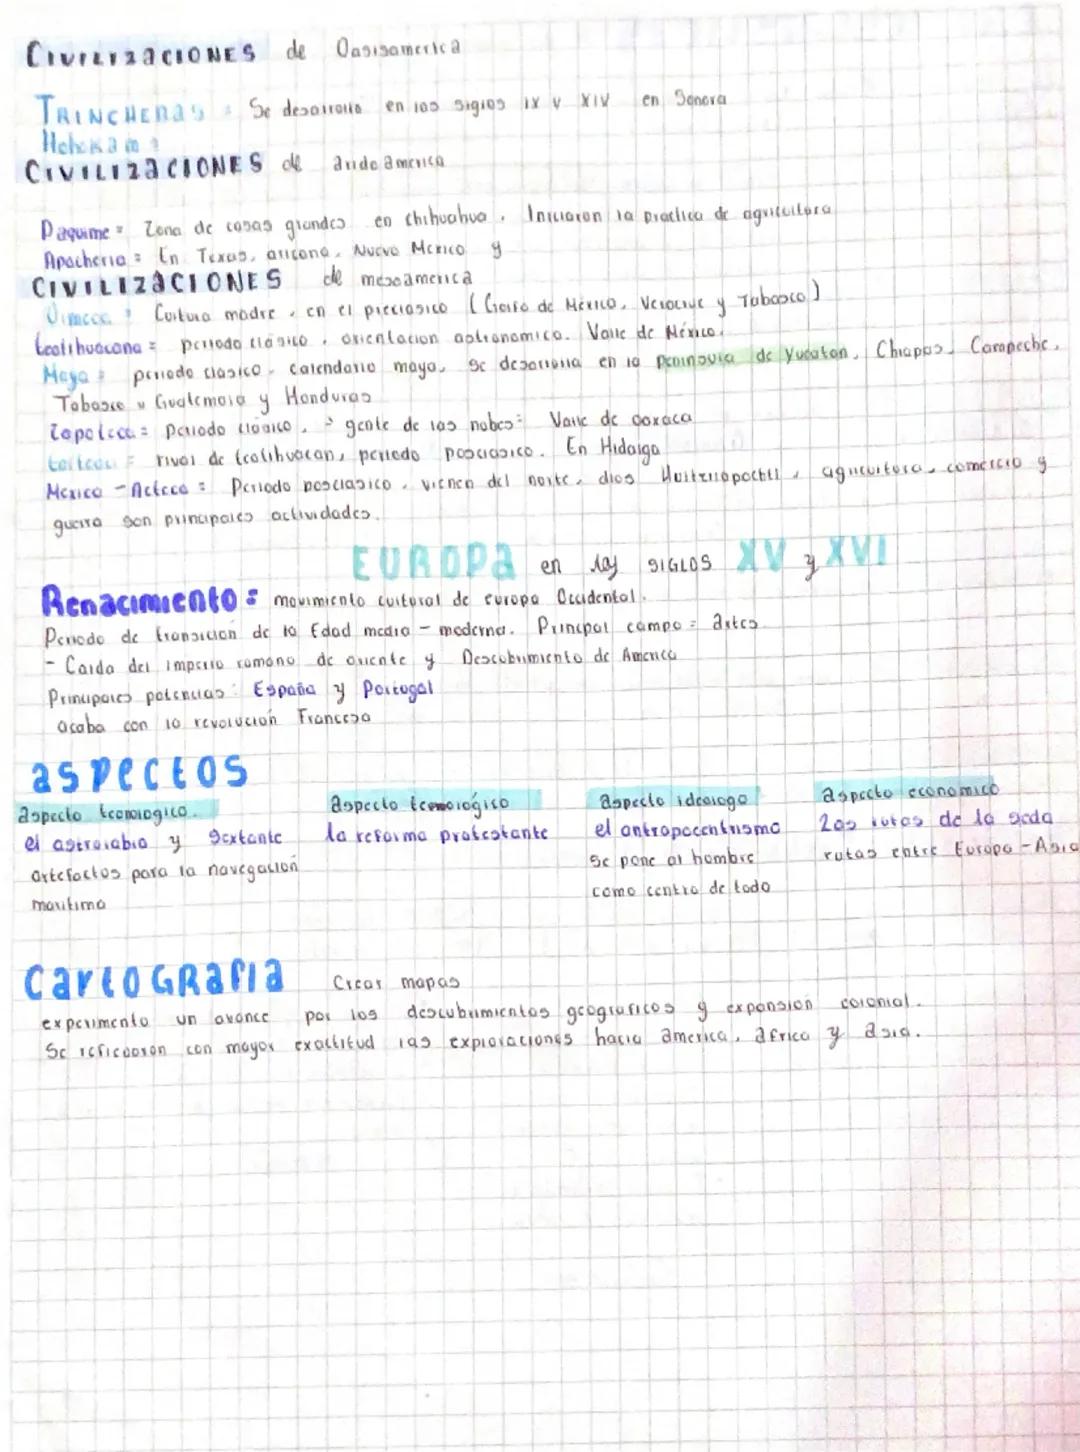 CIVILIZACIONES de Oasisamerica
TRINCHERAS = Se desarrollo en los siglos IX y XIV en Sonora
Hohokam =
CIVILIZACIONES de arido america
Paquime = Zona de casas grandes en chihuahua. Iniciaron la practica de agricultura
Apacheria = En Texas, arizona, Nuevo Mexico y
CIVILIZACIONES de mesoamerica
Olmeca = Cultura madre, en el preclasico (Golfo de México, Veracruz y Tabasco)
teotihuacana = periodo clásico, orientacion astronomica. Valle de México.
Maya = periodo clasico. calendario maya, se desarrolla en la peninsula de Yucatan, Chiapas, Campeche,
Tabasco y Guatemala y Honduras
Zapoteca = Periodo clásico, gente de las nubes: Valle de oaxaca
tolteca = rival de teotihuacan, periodo posclasico. En Hidalgo
Mexico - Azteca = Periodo posclasico, vienen del norte, dios Huitzilopochtli, agricultura, comercio y
guerra son principales actividades.
EUROPa en los SIGLOS XV y XVI
Renacimiento = movimiento cultural de europa Occidental.
Periodo de transicion de la Edad media - moderna. Principal campo = artes
- Caida del imperio romano de oriente y Descubrimiento de America
Principales potencias: España y Portugal
acaba con la revolución Francesa
aspectos
aspecto tecnologico. aspecto tecnológico aspecto ideologo aspecto economico
el astrolabio y sextante la reforma protestante el antropocentrismo Las rutas de la seda
artefactos para la navegación se pone al hombre rutas entre Europa - Asia
maritima como centro de todo
CartoGRafia Crear mapas
experimento un avance por los descubrimientos geograficos y expansion colonial.
Se reflejaron con mayor exactitud las exploraciones hacia america, africa y asia.